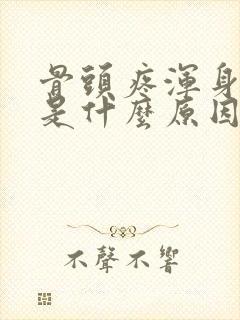 骨頭疼渾身
是什麼原因
不聲不響